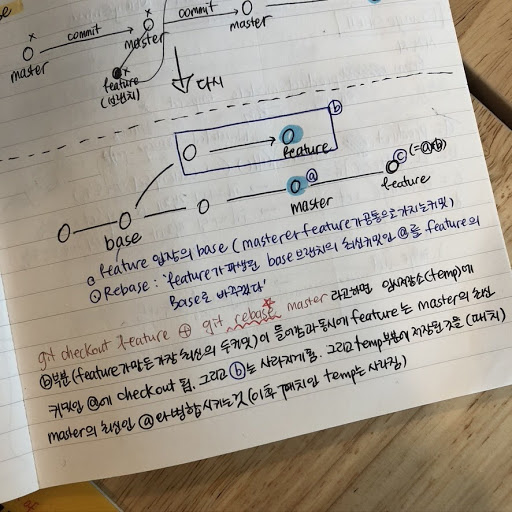 se
commit
commit
master
master
master
feature
다시
ⓑ
feature
ⓐ
ⓒ (=ⓐ+ⓑ)
master
feature
base
feature 입장의 base (master와 feature가 공통으로 가지는 커밋)
Rebase : 'feature가 파생된 base 브랜치의 최신커밋인 ⓐ를 feature의
Base로 바꾸겠다'
git checkout feature ⊕ git rebase master 라고하면 임시저장소(temp)에
ⓑ부분(feature가 만든 가장 최신의 두커밋)이 들어감과 동시에 feature는 master의 최신
커밋인 ⓐ에 checkout 됨. 그리고 ⓑ는 사라지게됨. 그리고 temp부분에 저장된것을 (패치)
master의 최신인 ⓐ와 병합시키는것 (이후 패치인 temp는 사라짐)